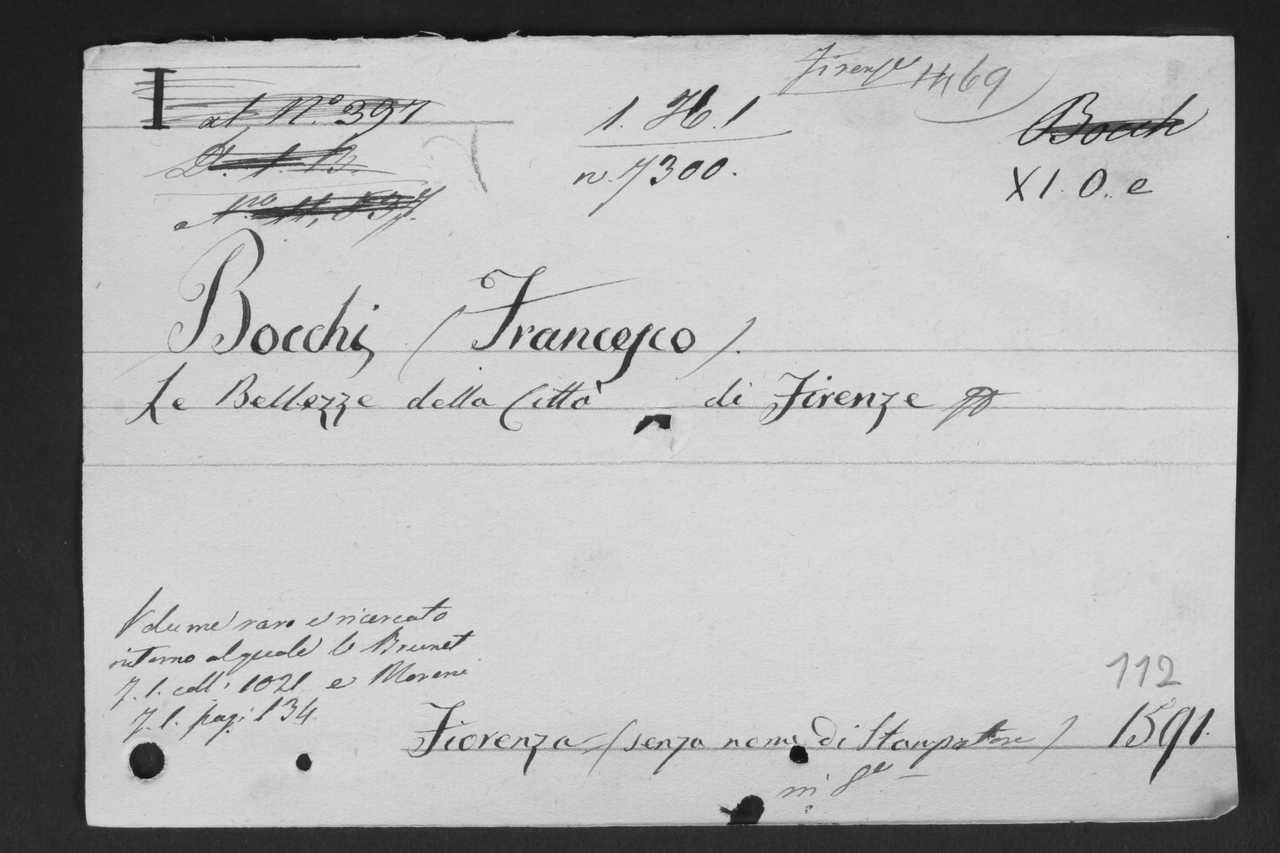 Firenze
N.º 397
1. H. 1
n. 7300.
Bocch
XI. O. e
Bocchi, (Francesco).
Le Bellezze della Città di Firenze
Volume raro e ricercato
intorno al quale lo Brunet
T. 1. coll. 1021. e Moreni
T. 1. pag. 134.
112
Fiorenza (senza nome di Stampatore) 1591.
in 8º